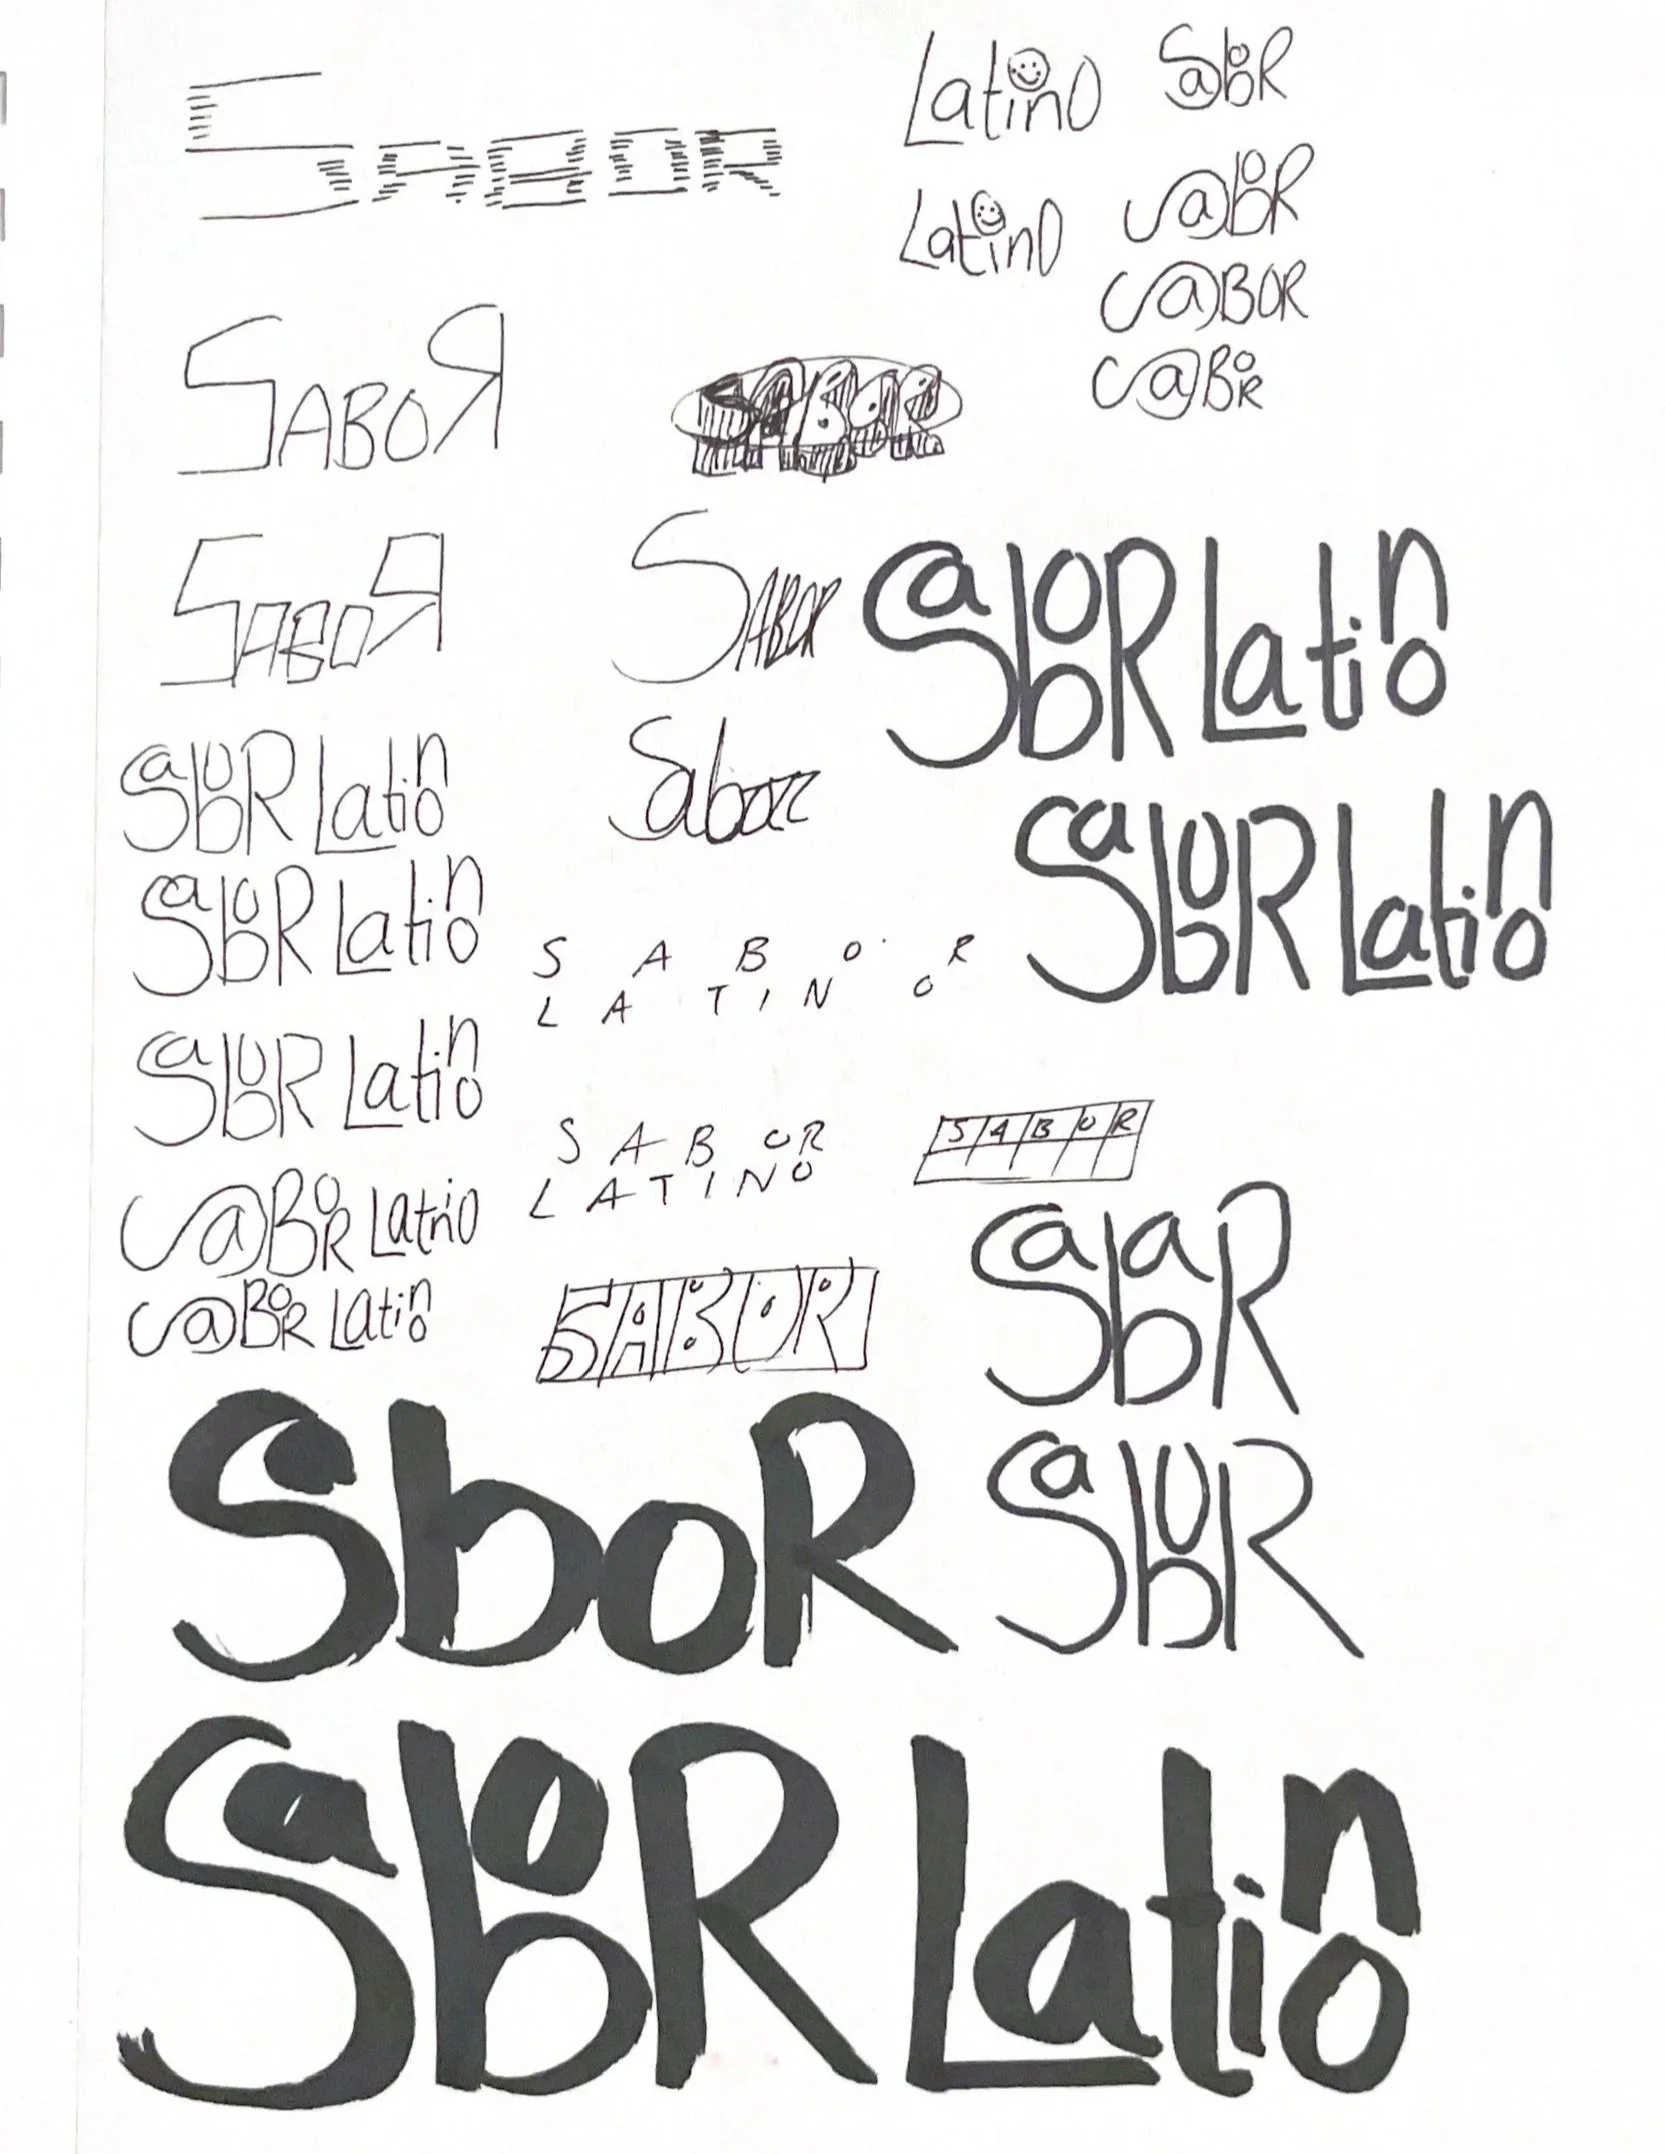 SABOR
Latino
SaboR
Latino
S@boR
S@BOR
S@BoR
SABOR
SABOR
SABOR
SABOR
Sabor
SaboR Latino
SaboR Latino
SaboR Latino
SaboR Latino
SaboR Latino
S A B O R
L A T I N O
S A B O R
L A T I N O
SABOR
S@BoR Latino
S@BoR Latino
SABOR
SabaR
SboR
SaboR
SaboR Latino